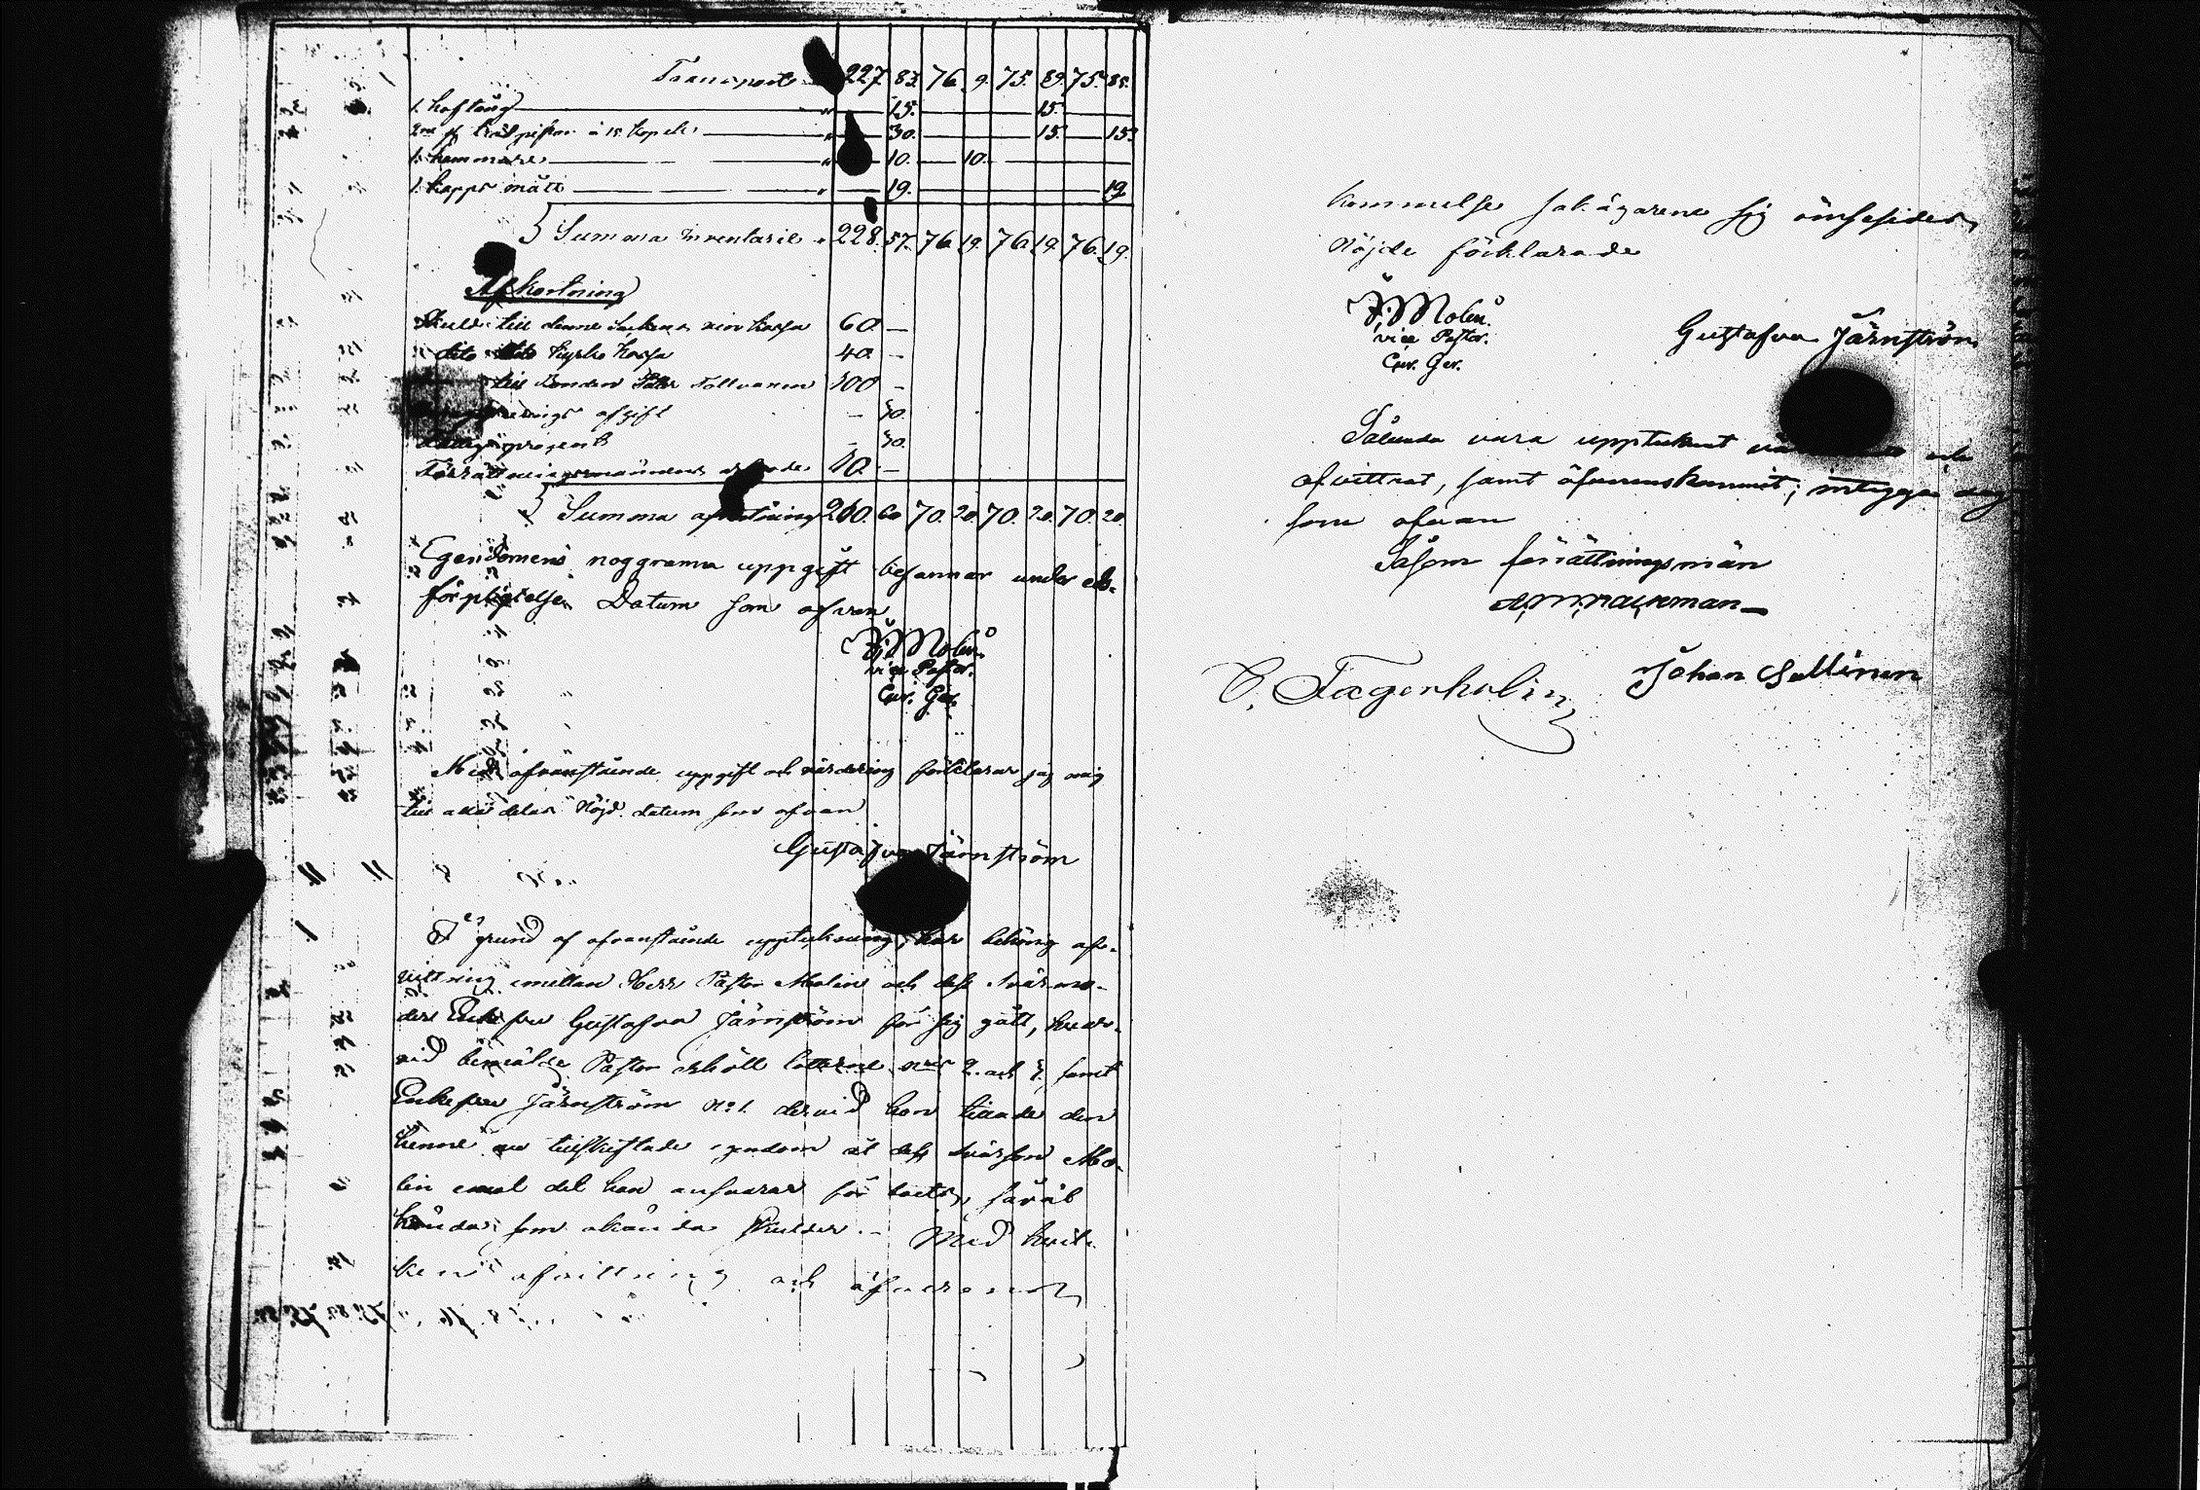 Transport 227. 83. 76. 9. 75. 89. 75. 85.
1. hoftång " 15. 15.
2ne st. à 15 kopek " 30. 15. 15.
1. hammare " 10. 10.
1. kapps mått " 19. 19.
Summa Inventarie " 228. 57. 76. 19. 76. 19. 76. 19.
Afkortning
Skuld till denne Sockens kassa 60. –
dito dito kyrko kassa 40. –
till Bonden Tolvanen 100 –
afgift – 30.
procent – 30.
Förrättningsmännens arfvode 10. –
Summa afkortning 210. 60. 70. 20. 70. 20. 70. 20.
Egendomens noggranna uppgift besannar under eds-
förpligtelse. Datum som ofvan
F: Molin.
vice Pastor.
Cur. Ger.
Med ofvanstående uppgift och värdering förklarar jag mig
till alla delar nöjd. datum som ofvan
Gustafva Järnström
På grund af ofvanstående uppteckning, har behörig af-
vittring emellan Herr Pastor Molin och dess svärmo-
der Enkefru Gustafva Järnström för sig gått, hvar-
vid bemälde Pastor erhöll lotterne n:ris 2. och 3. samt
Enkefru Järnström N:o 1. dervid hon den
henne nu tillskiftade egendom åt dess svärson Mo-
lin emot det han ansvarar för boets, såväl
kända, som okända skulder. – Med hvil-
ken afvittring och öfverens
kommelse sakägarene sig ömsesides
nöjde förklarade
F: Molin.
vice Pastor.
Cur. Ger.
Gustafva Järnström
Sålunda vara upptecknat och
afvittrat, samt öfverenskommit; intyga dag
som ofvan
Såsom förrättningsmän
Johan Sallinen
C. Fagerholm